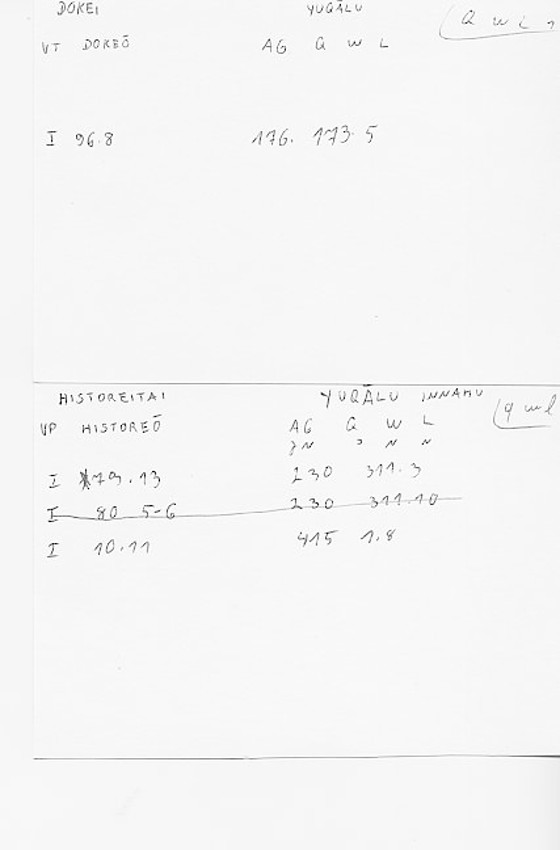 DOKEI YUQĀLU
VT DOKEŌ AG Q W L (Q W L
I 96.8 176. 173.5
HISTOREITAI YUQĀLU INNAHU
VP HISTOREŌ AG Q W L (q w l
ʾ N N
I 79.13 230 311.3
I 80 5-6 230 311.10
I 10.11 415 1.8